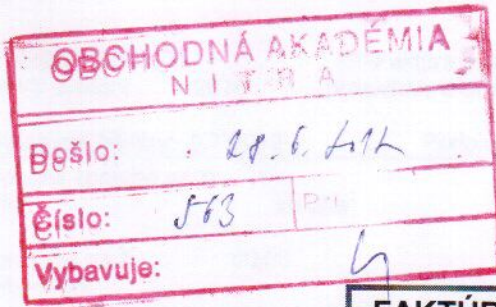 OBCHODNÁ AKADÉMIA
NITRA
Došlo: 28.6.
Číslo: 563
Vybavuje: